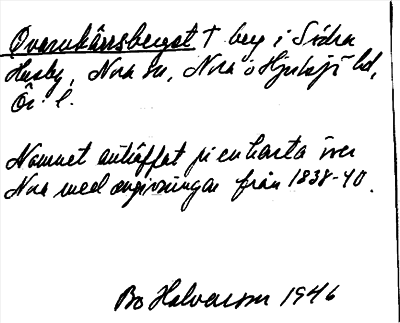 Qvarnkärrsberget † berg i Södra
Husby, Nora sn, Nora o Hjulsjö bd,
Ör. l.
Namnet anträffat på en karta över
Nora med omgivningar från 1838-40.
Bo Halvarson 1946